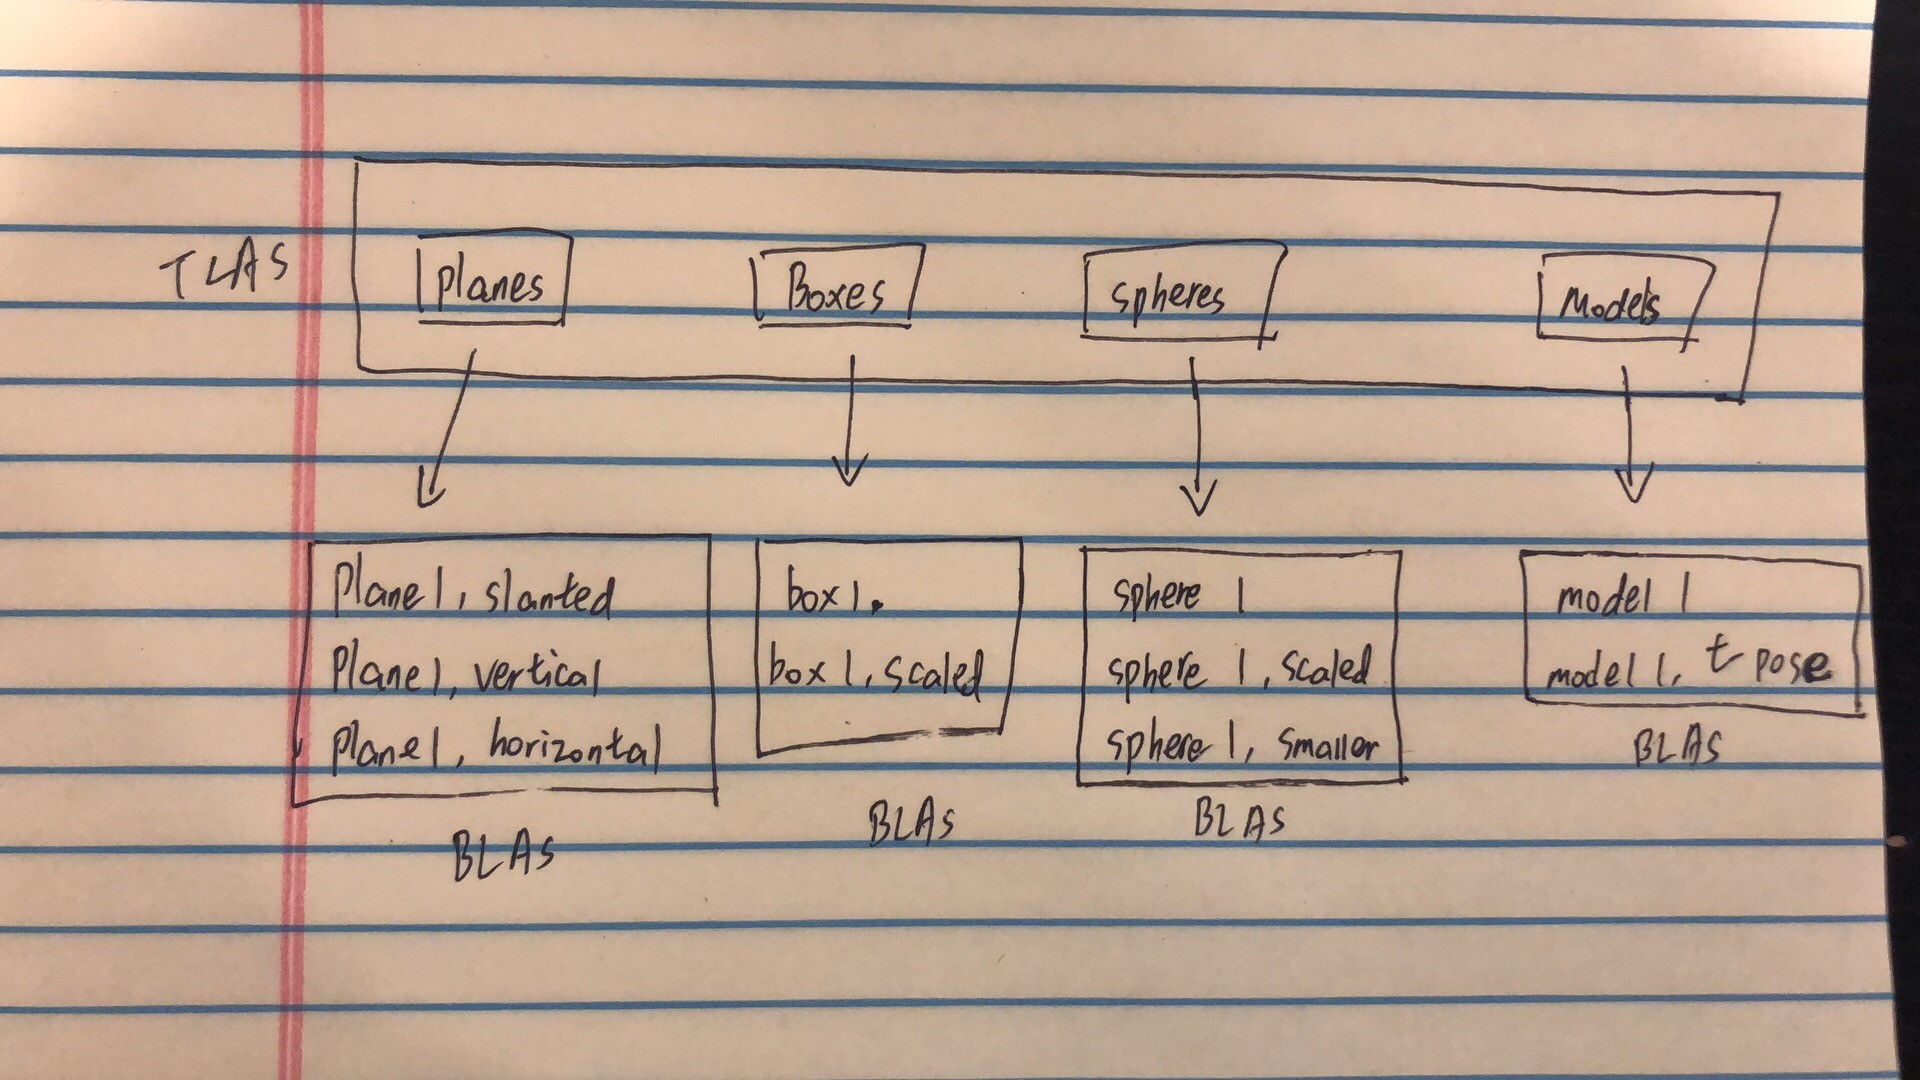 TLAS
Planes
Boxes
Spheres
Models
Plane 1, slanted
Plane 1, vertical
Plane 1, horizontal
BLAS
box 1.
box 1, scaled
BLAS
sphere 1
sphere 1, scaled
sphere 1, smaller
BLAS
model 1
model 1, t pose
BLAS